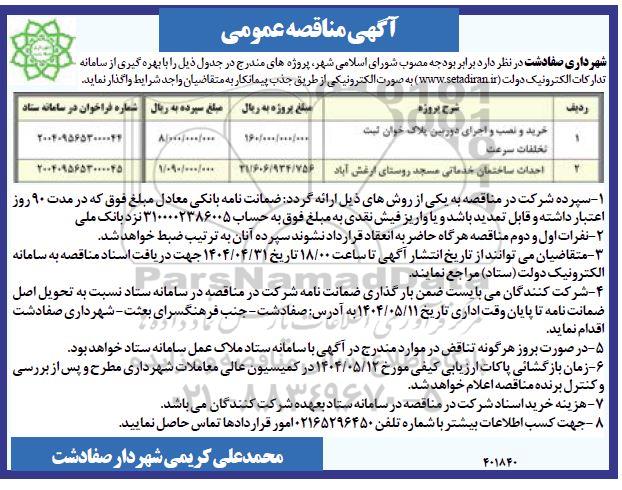 آگهی مناقصه عمومی
شهرداری صفادشت در نظر دارد برابر بودجه مصوب شورای اسلامی شهر، پروژه های مندرج در جدول ذیل را با بهره گیری از سامانه
تدارکات الکترونیک دولت (www.setadiran.ir) به صورت الکترونیکی از طریق جذب پیمانکار به متقاضیان واجد شرایط واگذار نماید.
ردیف شرح پروژه مبلغ پروژه به ریال مبلغ سپرده به ریال شماره فراخوان در سامانه ستاد
۱ خرید و نصب و اجرای دوربین پلاک خوان ثبت تخلفات سرعت ۱۶۰/۰۰۰/۰۰۰/۰۰۰ ۸/۰۰۰/۰۰۰/۰۰۰ ۲۰۰۴۰۹۵۶۵۳۰۰۰۰۴۴
۲ احداث ساختمان خدماتی مسجد روستای ارغش آباد ۲۱/۶۰۶/۹۳۴/۷۵۶ ۱/۰۹۰/۰۰۰/۰۰۰ ۲۰۰۴۰۹۵۶۵۳۰۰۰۰۴۵
۱-سپرده شرکت در مناقصه به یکی از روش های ذیل ارائه گردد: ضمانت نامه بانکی معادل مبلغ فوق که در مدت ۹۰ روز
اعتبار داشته و قابل تمدید باشد و یا واریز فیش نقدی به مبلغ فوق به حساب ۳۱۰۰۰۰۲۳۸۶۰۰۵ نزد بانک ملی
۲-نفرات اول و دوم مناقصه هرگاه حاضر به انعقاد قرارداد نشوند سپرده آنان به ترتیب ضبط خواهد شد.
۳-متقاضیان می توانند از تاریخ انتشار آگهی تا ساعت ۱۸/۰۰ تاریخ ۱۴۰۴/۰۴/۳۱ جهت دریافت اسناد مناقصه به سامانه
الکترونیک دولت (ستاد) مراجع نمایند.
۴-شرکت کنندگان می بایست ضمن بارگذاری ضمانت نامه شرکت در مناقصه در سامانه ستاد نسبت به تحویل اصل
ضمانت نامه تا پایان وقت اداری تاریخ ۱۴۰۴/۰۵/۱۱ به آدرس: صفادشت- جنب فرهنگسرای بعثت- شهرداری صفادشت
اقدام نماید.
۵-در صورت بروز هرگونه تناقض در موارد مندرج در آگهی با سامانه ستاد ملاک عمل سامانه ستاد خواهد بود.
۶-زمان بازگشائی پاکات ارزیابی کیفی مورخ ۱۴۰۴/۰۵/۱۲ در کمیسیون عالی معاملات شهرداری مطرح و پس از بررسی
و کنترل برنده مناقصه اعلام خواهد شد.
۷-هزینه خرید اسناد شرکت در مناقصه در سامانه ستاد بعهده شرکت کنندگان می باشد.
۸-جهت کسب اطلاعات بیشتر با شماره تلفن ۰۲۱۶۵۲۹۶۴۵۰ امور قراردادها تماس حاصل نمایید.
۴۰۱۸۴۰
محمدعلی کریمی شهردار صفادشت
ParsNamadData
۰۲۱-۸۸۳۴۹۶۷۰-۵